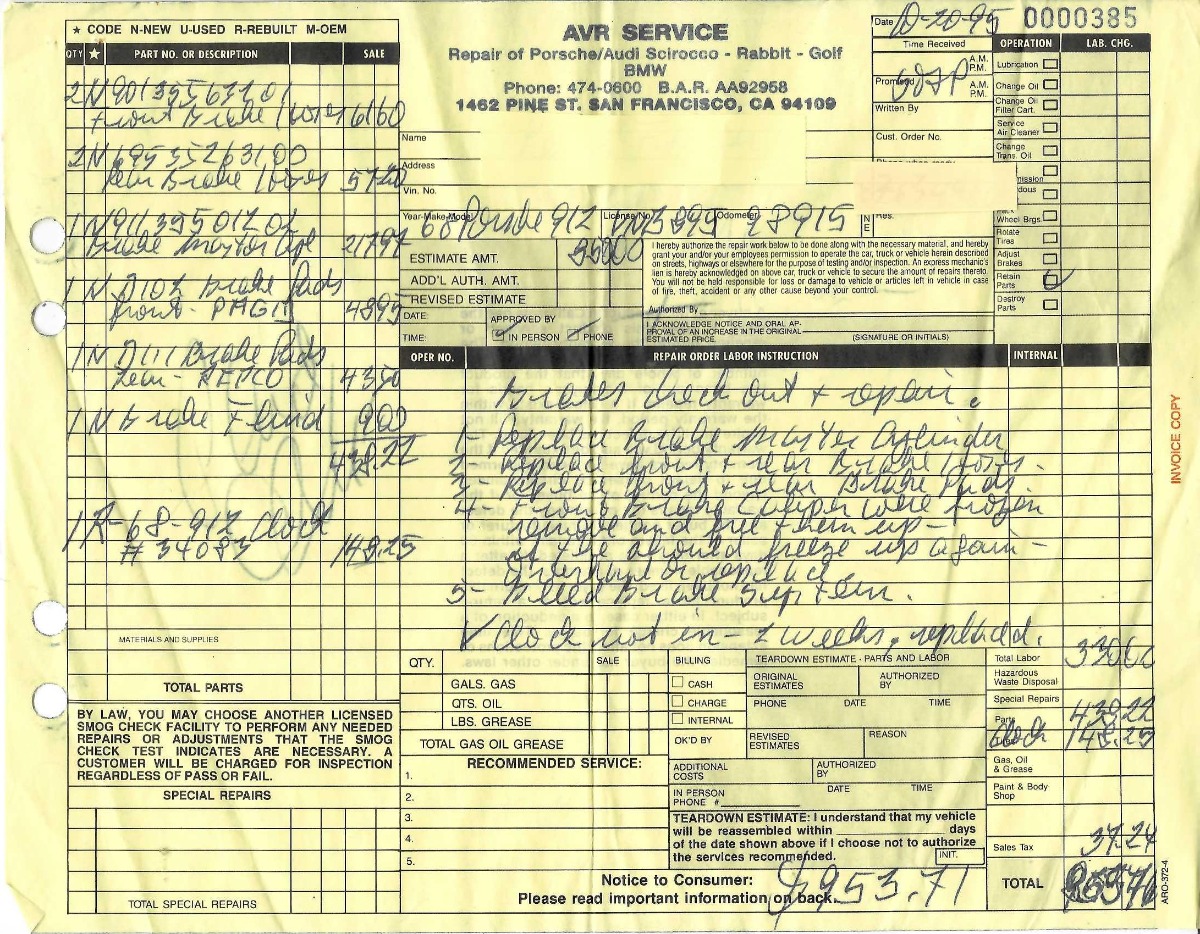 ★ CODE N-NEW U-USED R-REBUILT M-OEM
QTY ★ PART NO. OR DESCRIPTION SALE
2 N
Front Brake 6160
2 N
Rear Brake
1 N
Brake
1 N Brake Pads
front - PAGID 4895
1 N D111 Brake Pads
rear - REPCO 4350
1 N Brake Fluid 900
438.22
1 R-68-912 Clock
# 34083 148.25
MATERIALS AND SUPPLIES
TOTAL PARTS
BY LAW, YOU MAY CHOOSE ANOTHER LICENSED
SMOG CHECK FACILITY TO PERFORM ANY NEEDED
REPAIRS OR ADJUSTMENTS THAT THE SMOG
CHECK TEST INDICATES ARE NECESSARY. A
CUSTOMER WILL BE CHARGED FOR INSPECTION
REGARDLESS OF PASS OR FAIL.
SPECIAL REPAIRS
TOTAL SPECIAL REPAIRS
AVR SERVICE
Repair of Porsche/Audi Scirocco - Rabbit - Golf
BMW
Phone: 474-0600 B.A.R. AA92958
1462 PINE ST. SAN FRANCISCO, CA 94109
Date 10-20-95 0000385
Time Received A.M.
P.M.
Promised A.M.
P.M.
Written By
Cust. Order No.
Name
Address
Vin. No.
Year-Make-Model 68 Porsche 912 License No. Odometer 98915
Res.
ESTIMATE AMT.
ADD'L AUTH. AMT.
REVISED ESTIMATE
DATE: APPROVED BY
TIME: IN PERSON PHONE
I hereby authorize the repair work below to be done along with the necessary material, and hereby
grant your and/or your employees permission to operate the car, truck or vehicle herein described
on streets, highways or elsewhere for the purpose of testing and/or inspection. An express mechanic's
lien is hereby acknowledged on above car, truck or vehicle to secure the amount of repairs thereto.
You will not be held responsible for loss or damage to vehicle or articles left in vehicle in case
of fire, theft, accident or any other cause beyond your control.
Authorized By
I ACKNOWLEDGE NOTICE AND ORAL AP-
PROVAL OF AN INCREASE IN THE ORIGINAL
ESTIMATED PRICE. (SIGNATURE OR INITIALS)
OPERATION LAB. CHG.
Lubrication
Change Oil
Change Oil
Filter Cart.
Service
Air Cleaner
Change
Trans. Oil
Wheel Brgs.
Rotate
Tires
Adjust
Brakes
Retain
Parts
Destroy
Parts
OPER NO. REPAIR ORDER LABOR INSTRUCTION INTERNAL
Brakes check out + repair.
1- Replace Brake Master Cylinder
2- Replace front + rear Brake Hoses.
3- Replace front + rear Brake Pads.
4- Front Brake Caliper were frozen
remove and free them up -
should freeze up again -
overhaul or replace.
5- Bleed Brake System.
✓ Clock not in - 2 weeks, replaced.
QTY. SALE
GALS. GAS
QTS. OIL
LBS. GREASE
TOTAL GAS OIL GREASE
RECOMMENDED SERVICE:
1.
2.
3.
4.
5.
BILLING
CASH
CHARGE
INTERNAL
TEARDOWN ESTIMATE - PARTS AND LABOR
ORIGINAL
ESTIMATES
AUTHORIZED
BY
PHONE DATE TIME
OK'D BY
REVISED
ESTIMATES
REASON
ADDITIONAL
COSTS
AUTHORIZED
BY
IN PERSON
PHONE #
DATE TIME
TEARDOWN ESTIMATE: I understand that my vehicle
will be reassembled within days
of the date shown above if I choose not to authorize
the services recommended. INIT.
Notice to Consumer:
Please read important information on back.
$953.71
Total Labor 33000
Hazardous
Waste Disposal
Special Repairs
Parts 438.22
Clock 148.25
Gas, Oil
& Grease
Paint & Body
Shop
Sales Tax 37.24
TOTAL
INVOICE COPY
ARO-372-4